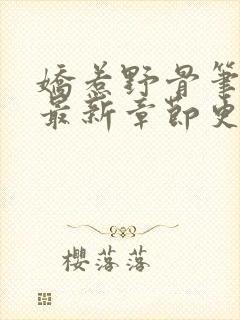 嬌惹野骨筆
最新章節更
櫻落落